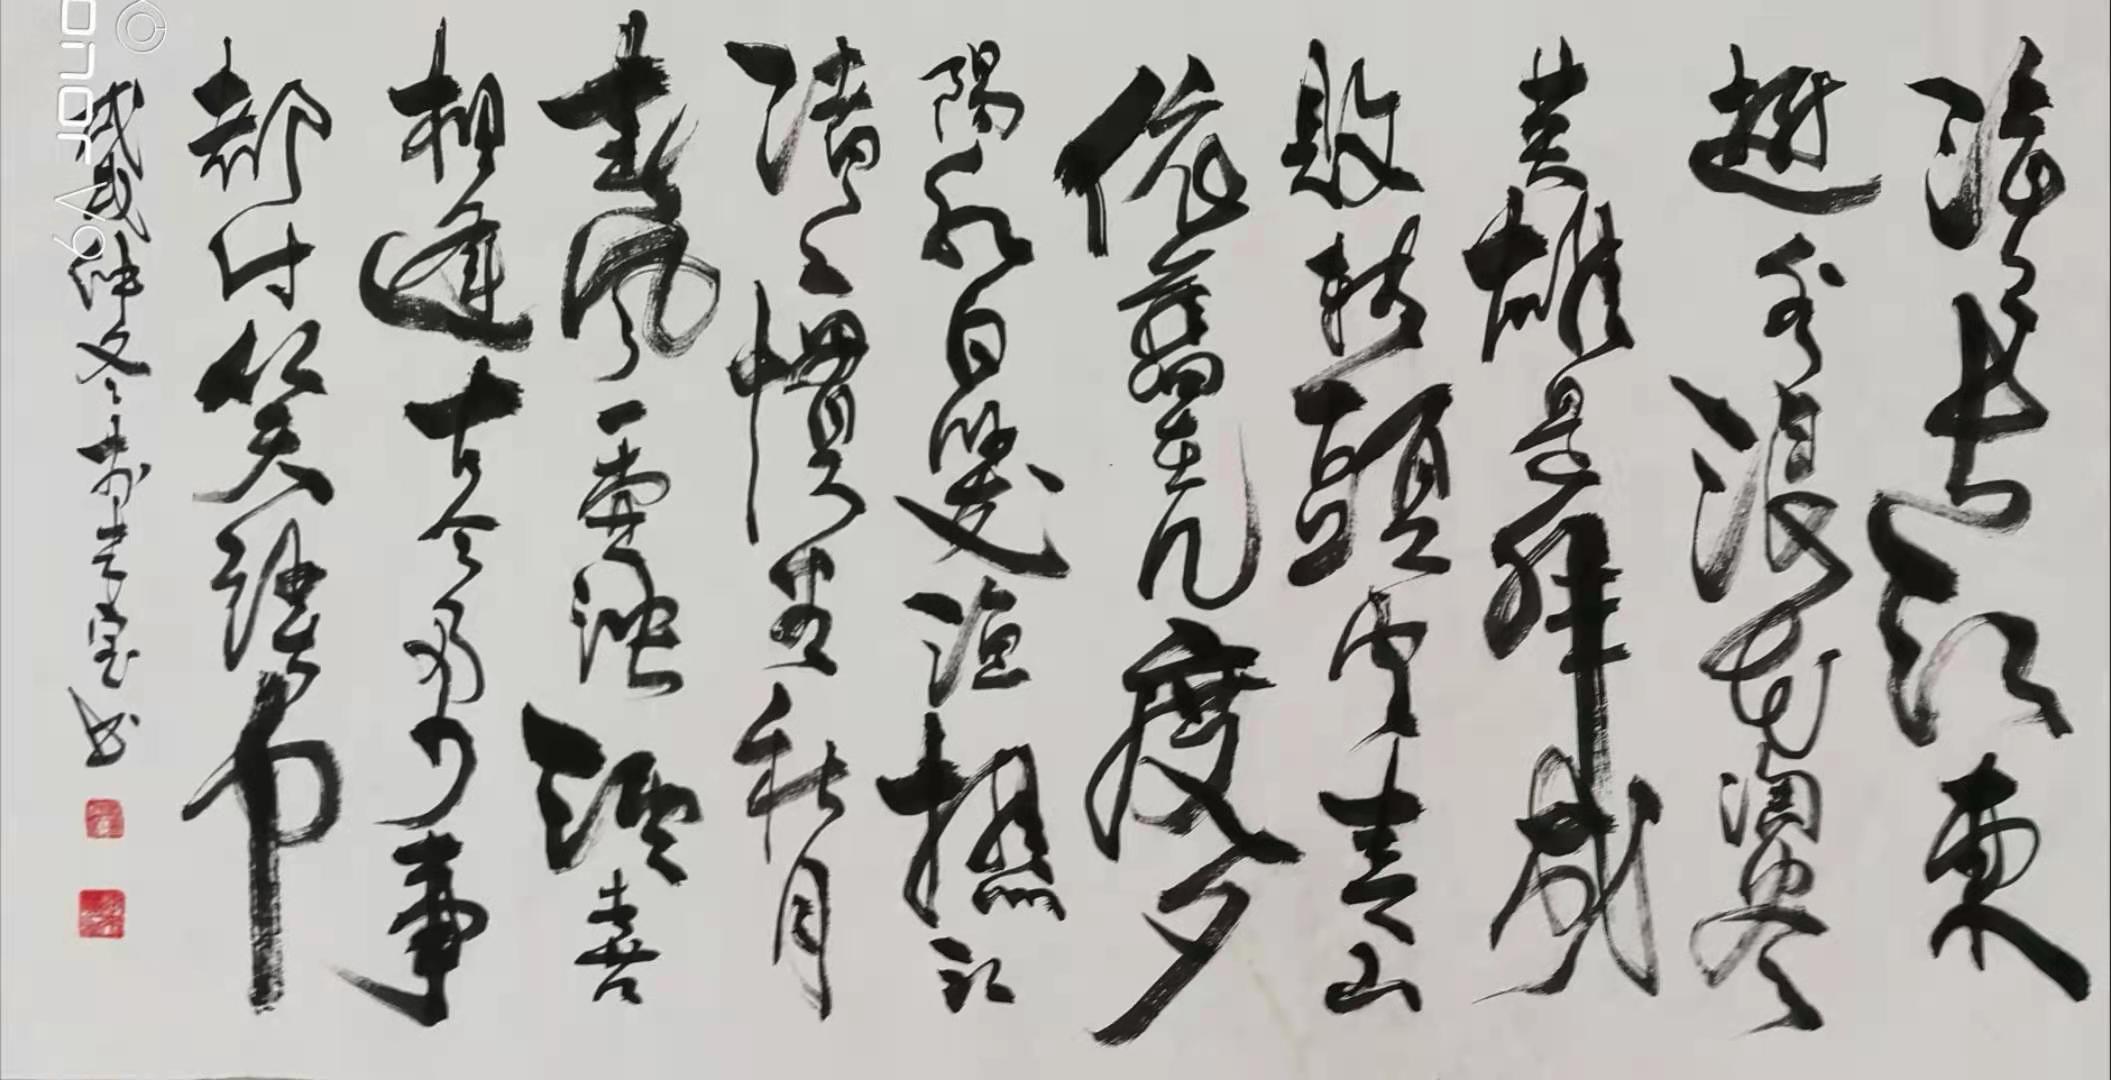 滚滚長江東
逝水浪花淘尽
英雄是非成
敗转頭空青山
依舊在几度夕
陽红白髮渔樵江
渚上慣看秋月
春風一壶浊酒喜
相逢古今多少事
都付笑谈中
戊戌仲冬书
onor V9